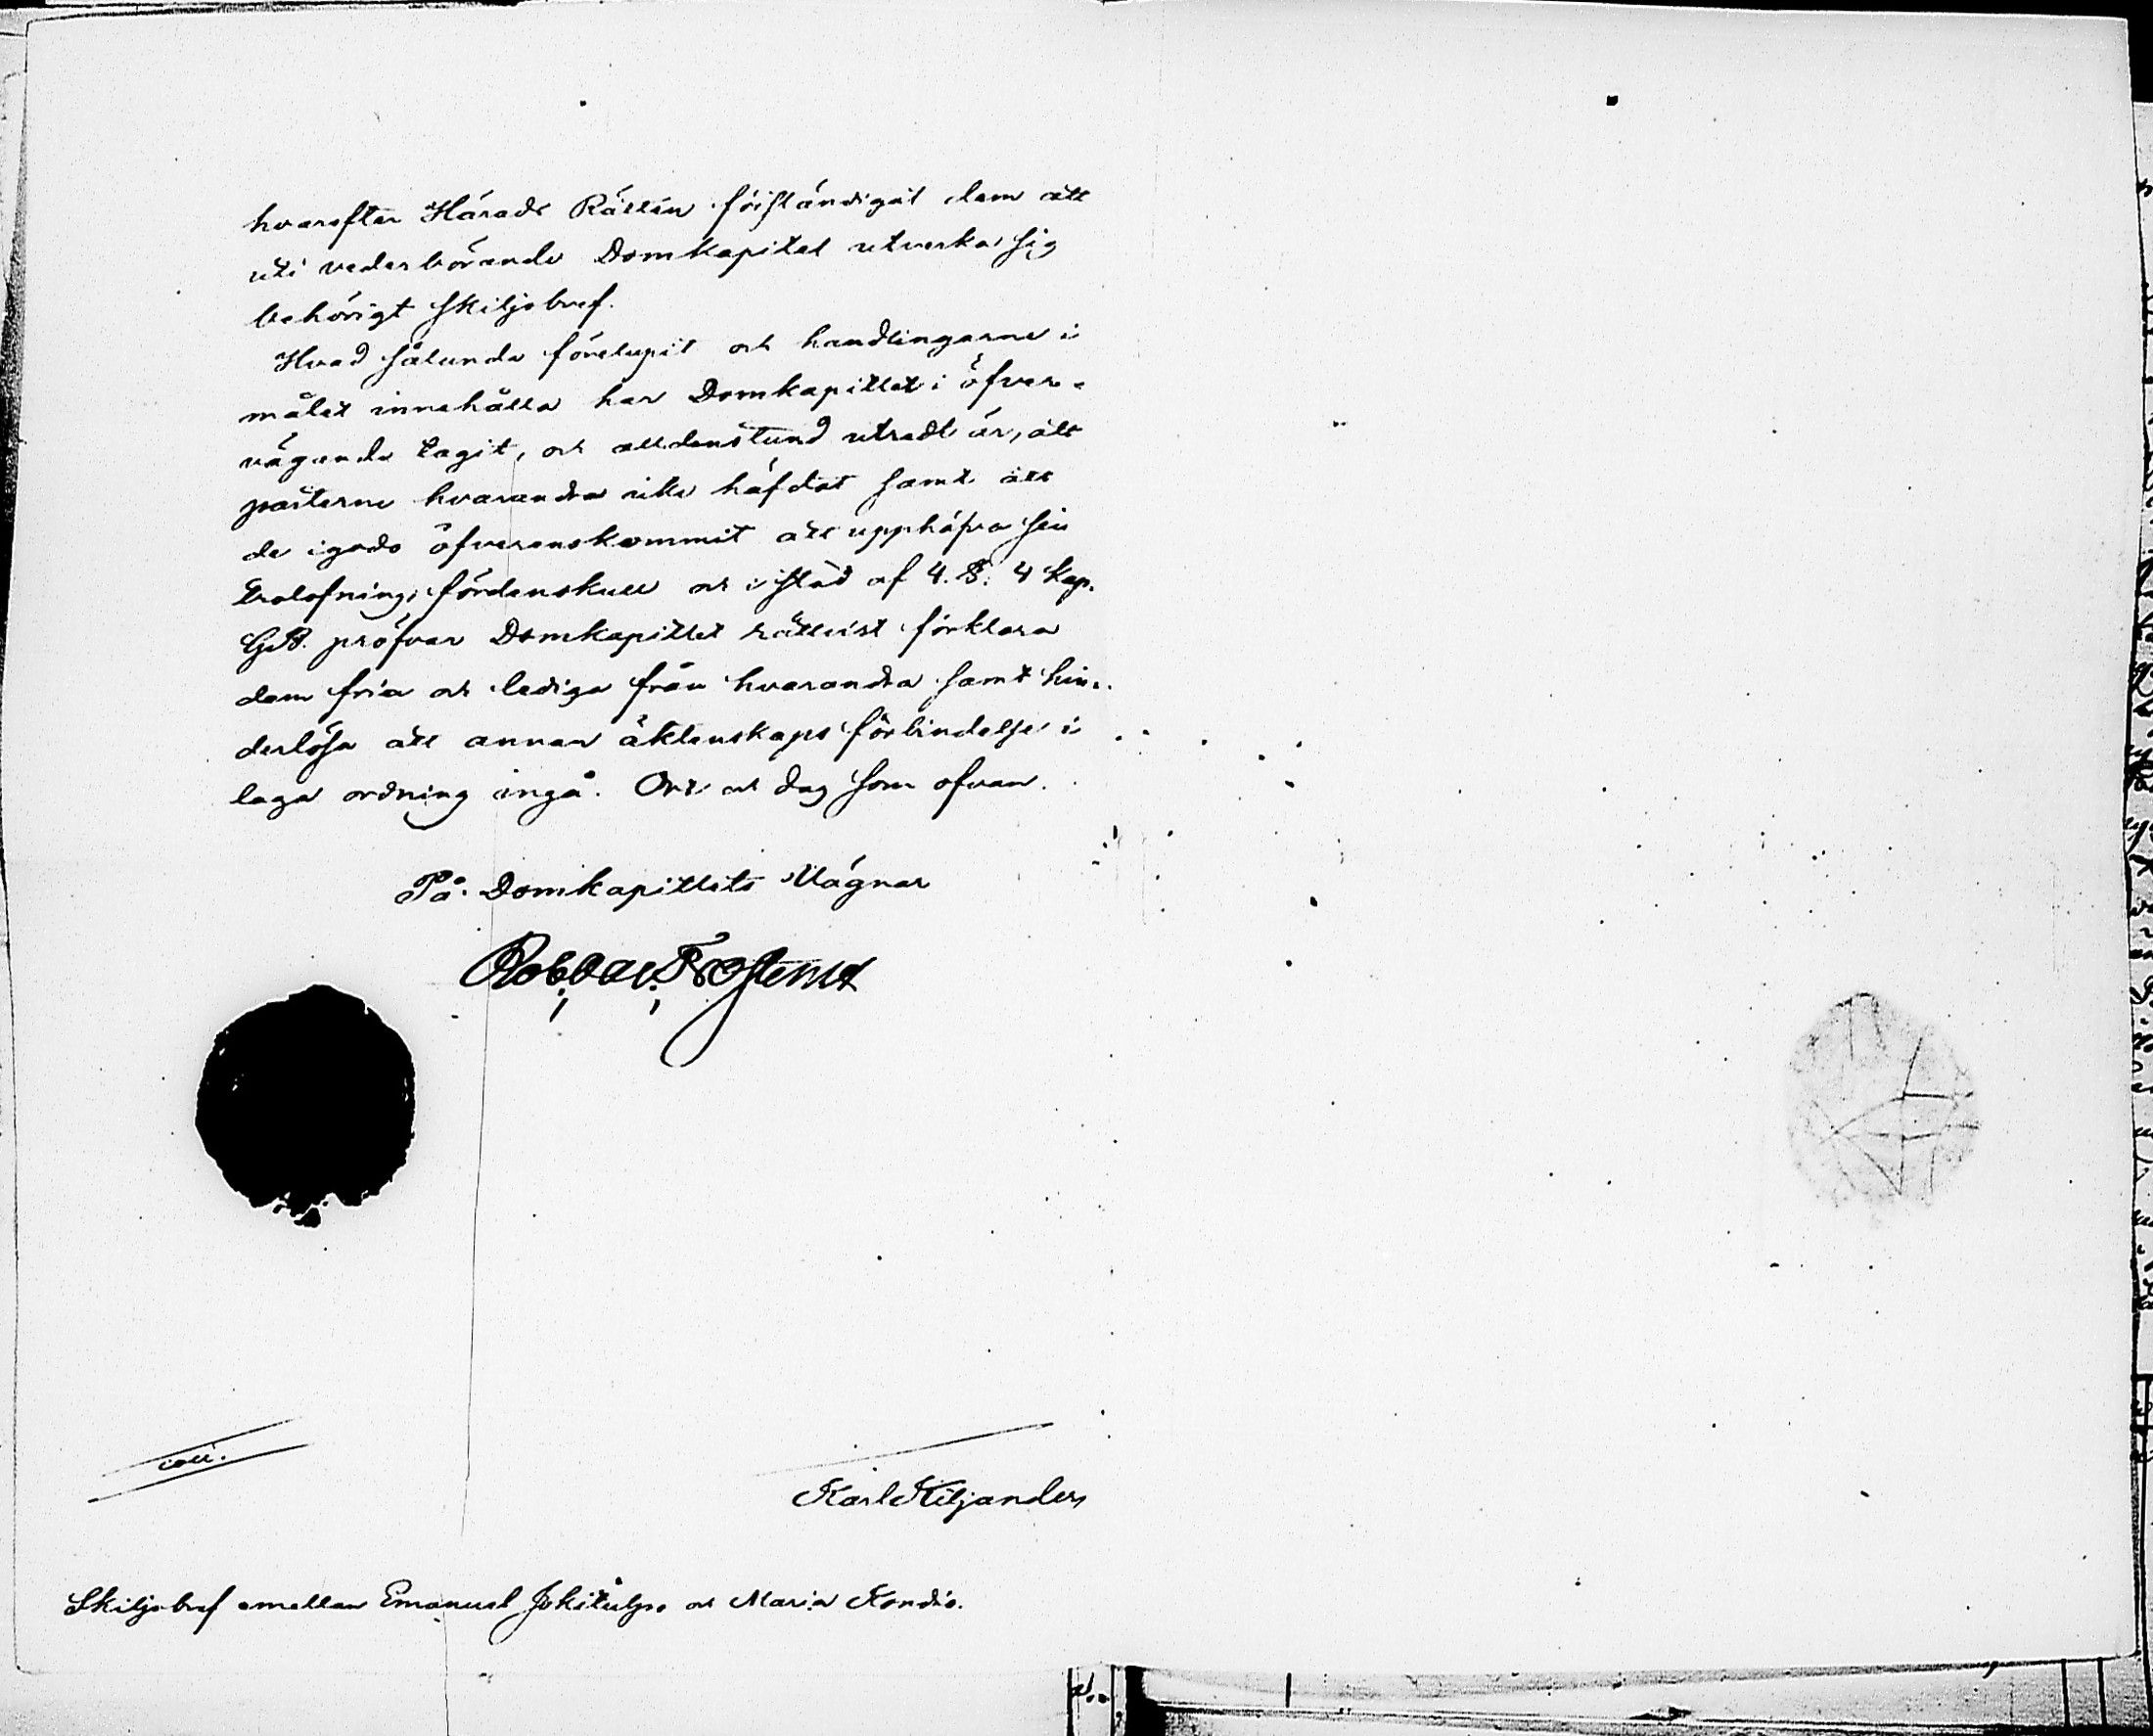 hvarefter Härads Rätten förständigat dem att
uti vederbörande Domkapitel utverka sig
behörigt skiljobref.
Hvad sålunda förelupit och handlingarne i
målet innehålla har Domkapitlet i öfver-
vägande tagit, och alldenstund utredt är, att
parterne hvarandra icke häfdat samt att
de i godo öfverenskommit att upphäfva sin
trolofning, fördenskull och i stöd af 4. §. 4 Kap.
G.B. pröfvar Domkapitlet rättvist förklara
dem fria och lediga från hvarandra samt hin-
derlösa att annan äktenskaps förbindelse i
laga ordning ingå. Ort och dag som ofvan.
På Domkapitlets Vägnar
Rob. Val. Frosterus
coll.
Karl Kiljander
Skiljobref emellan Emanuel Jokitulpo och Maria Kondio.